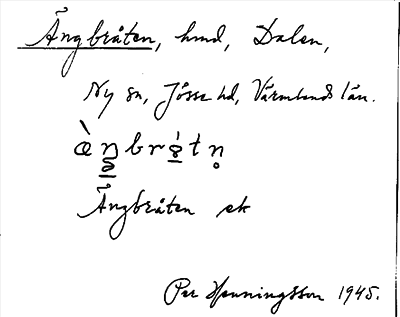 Ängbråten, hmd, Dalen,
Ny sn, Jösse hd, Värmlands län.
Ängbråten ek
Per Henningsson 1945.